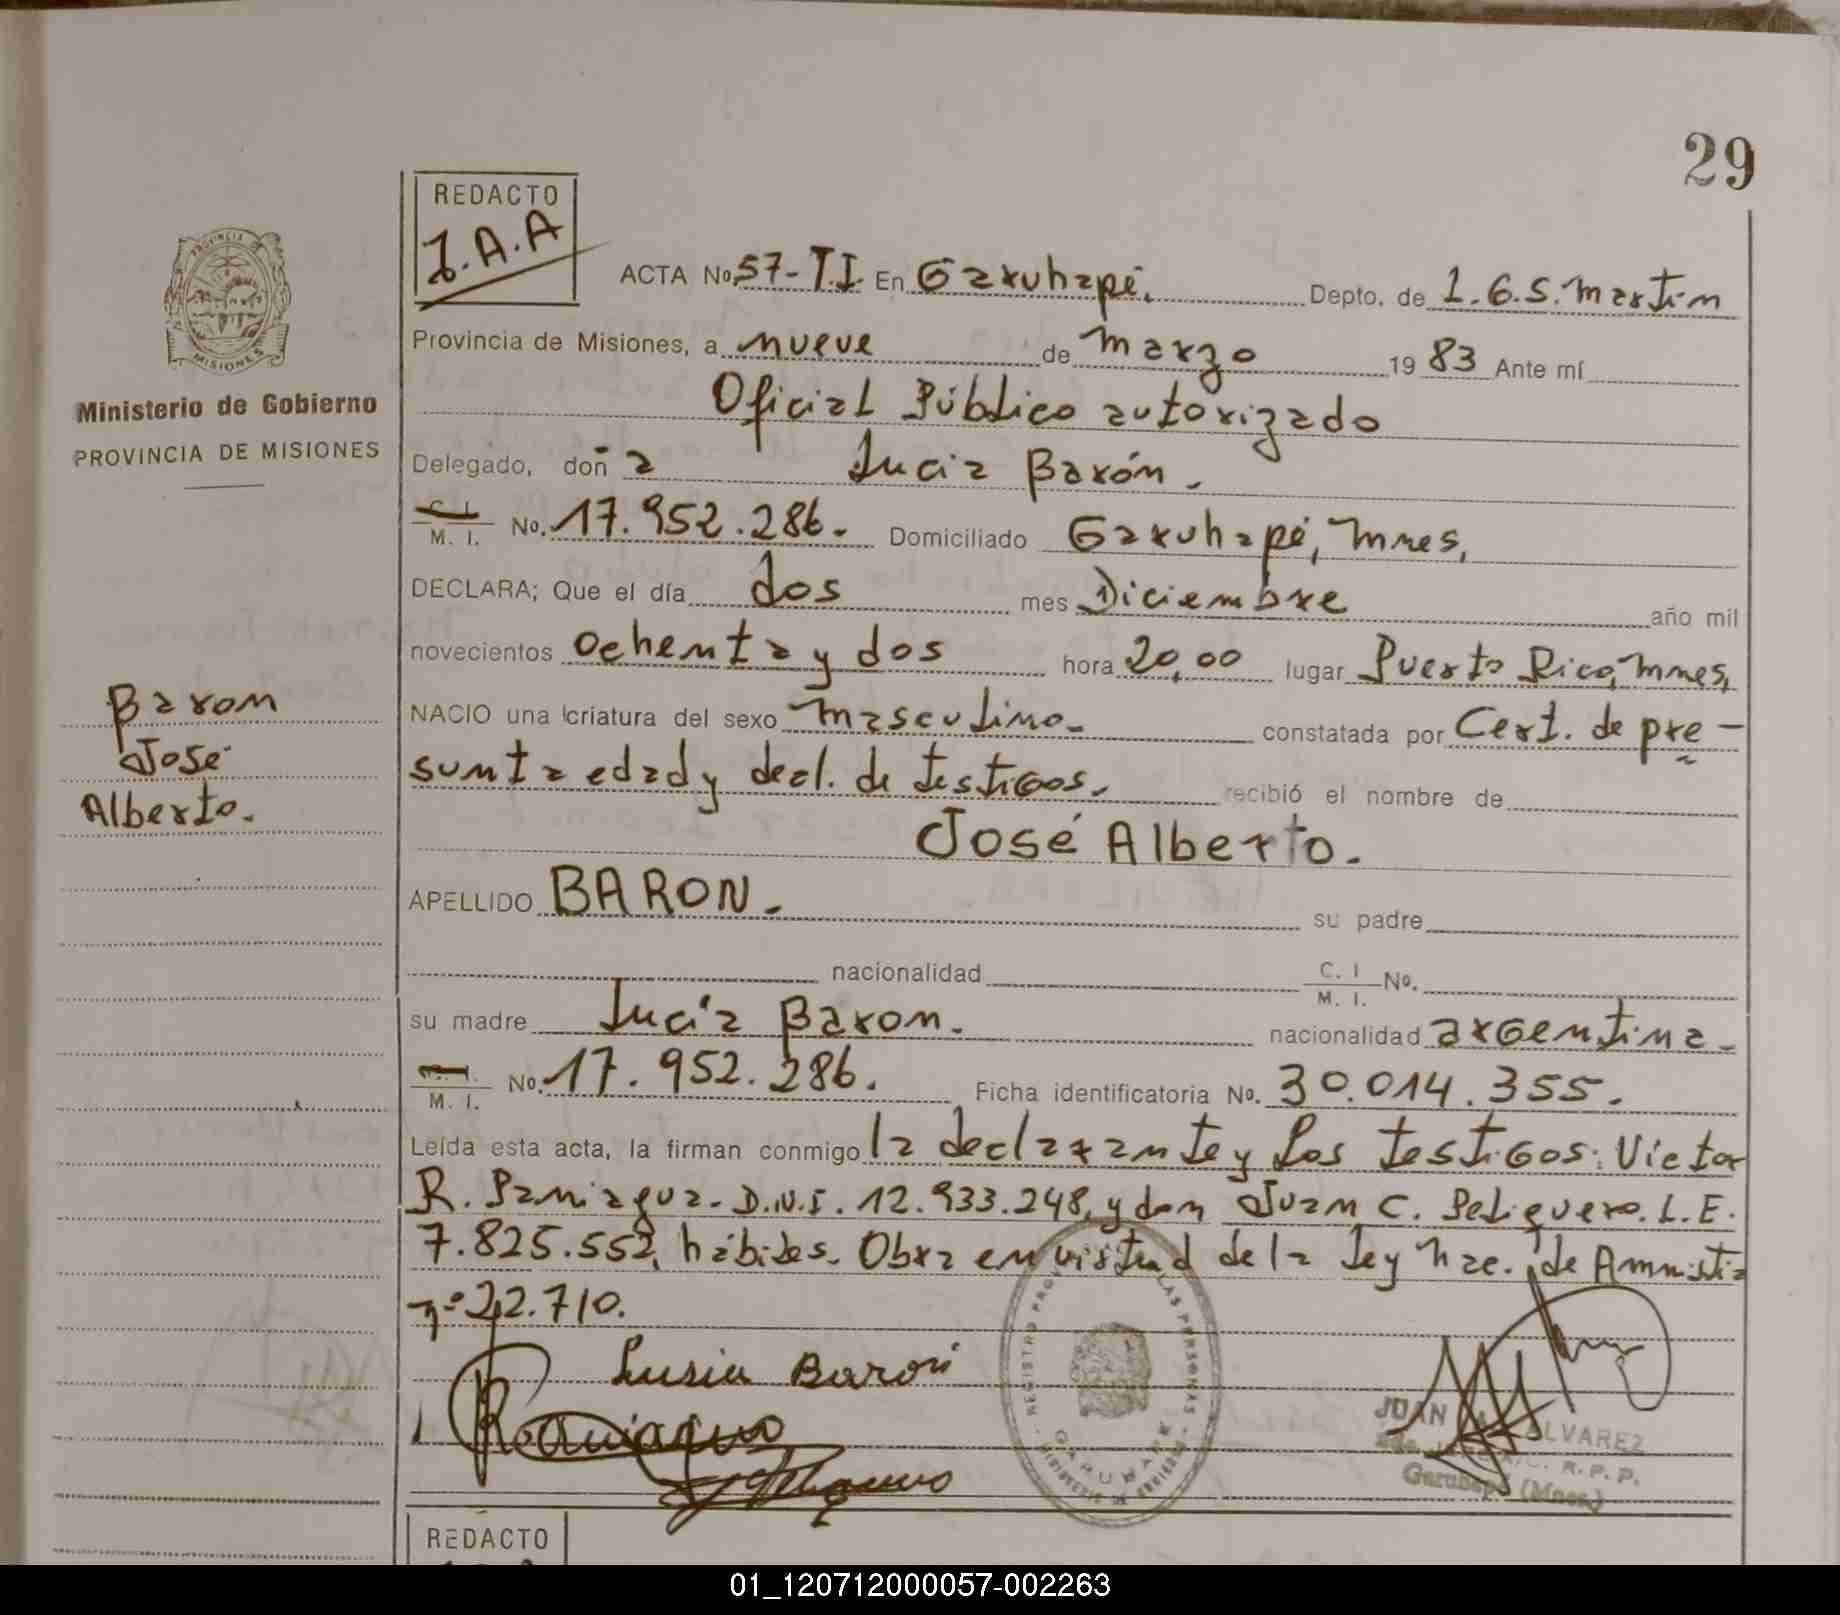 29
REDACTO
J.A.A
ACTA No. 57-T.I. En Garuhapé, Depto. de L.G.S. Martin
Provincia de Misiones, a nueve de marzo 1983 Ante mí
Oficial Público autorizado
Delegado, doña Lucia Barón.
C. I. M. I. No. 17.952.286. Domiciliado Garuhapé, Mnes,
DECLARA; Que el día dos mes Diciembre año mil
novecientos ochenta y dos hora 20,00 lugar Puerto Rico, Mnes,
NACIO una criatura del sexo masculino. constatada por Cert. de pre-
sunta edad y decl. de testigos. recibió el nombre de
José Alberto.
APELLIDO BARON. su padre
nacionalidad C. I M. I. No.
su madre Lucía Baron. nacionalidad argentina.
M. I. No. 17.952.286. Ficha identificatoria No. 30.014.355.
Leída esta acta, la firman conmigo la declarante y los testigos: Victor
R. Paniagua. D.N.I. 12.933.248, y don Juan C. Peliquero. L.E.
7.825.552, hábiles. Obra en virtud de la Ley Nac. de Amnistia
nº 22.710.
Lusia Baron
JUAN ALVAREZ
R.P.P.
Garuhapé (Mnes.)
REGISTRO PROV LAS PERSONAS
GARUHAPE
MINISTERIO DE GOBIERNO
PROVINCIA DE
MISIONES
Ministerio de Gobierno
PROVINCIA DE MISIONES
Baron
José
Alberto.
REDACTO
01_120712000057-002263